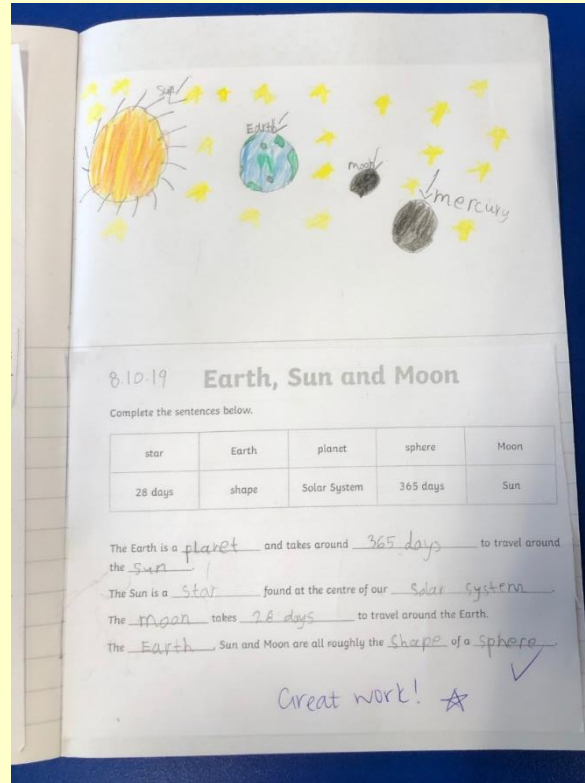 Sun
Earth
moon
mercury
8.10.19 Earth, Sun and Moon
Complete the sentences below.
star Earth planet sphere Moon
28 days shape Solar System 365 days Sun
The Earth is a planet and takes around 365 days to travel around
the sun.
The Sun is a star found at the centre of our solar system.
The moon takes 28 days to travel around the Earth.
The Earth, Sun and Moon are all roughly the shape of a sphere.
Great work!